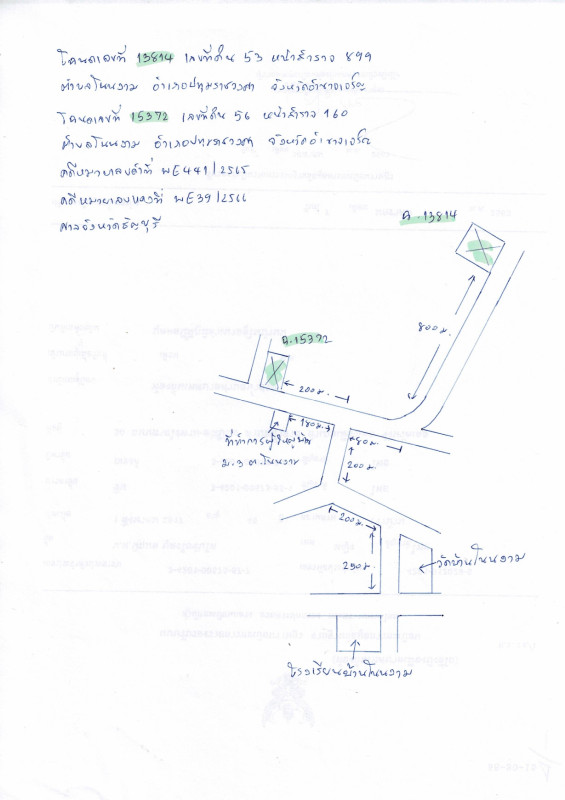 โฉนดเลขที่ 13814 เลขที่ดิน 53 หน้าสำรวจ 899
ตำบลโนนงาม อำเภอปทุมราชวงศา จังหวัดอำนาจเจริญ
โฉนดเลขที่ 15372 เลขที่ดิน 56 หน้าสำรวจ 160
ตำบลโนนงาม อำเภอปทุมราชวงศา จังหวัดอำนาจเจริญ
คดีหมายเลขดำที่ พE441/2565
คดีหมายเลขแดงที่ พE39/2566
ศาลจังหวัดธัญบุรี
ฉ.13814
800ม.
ฉ.15372
200ม.
180ม.
80ม.
ที่ทำการผู้ใหญ่บ้าน
ม.3 ต.โนนงาม
200ม.
200ม.
250ม.
วัดบ้านโนนงาม
โรงเรียนบ้านโนนงาม